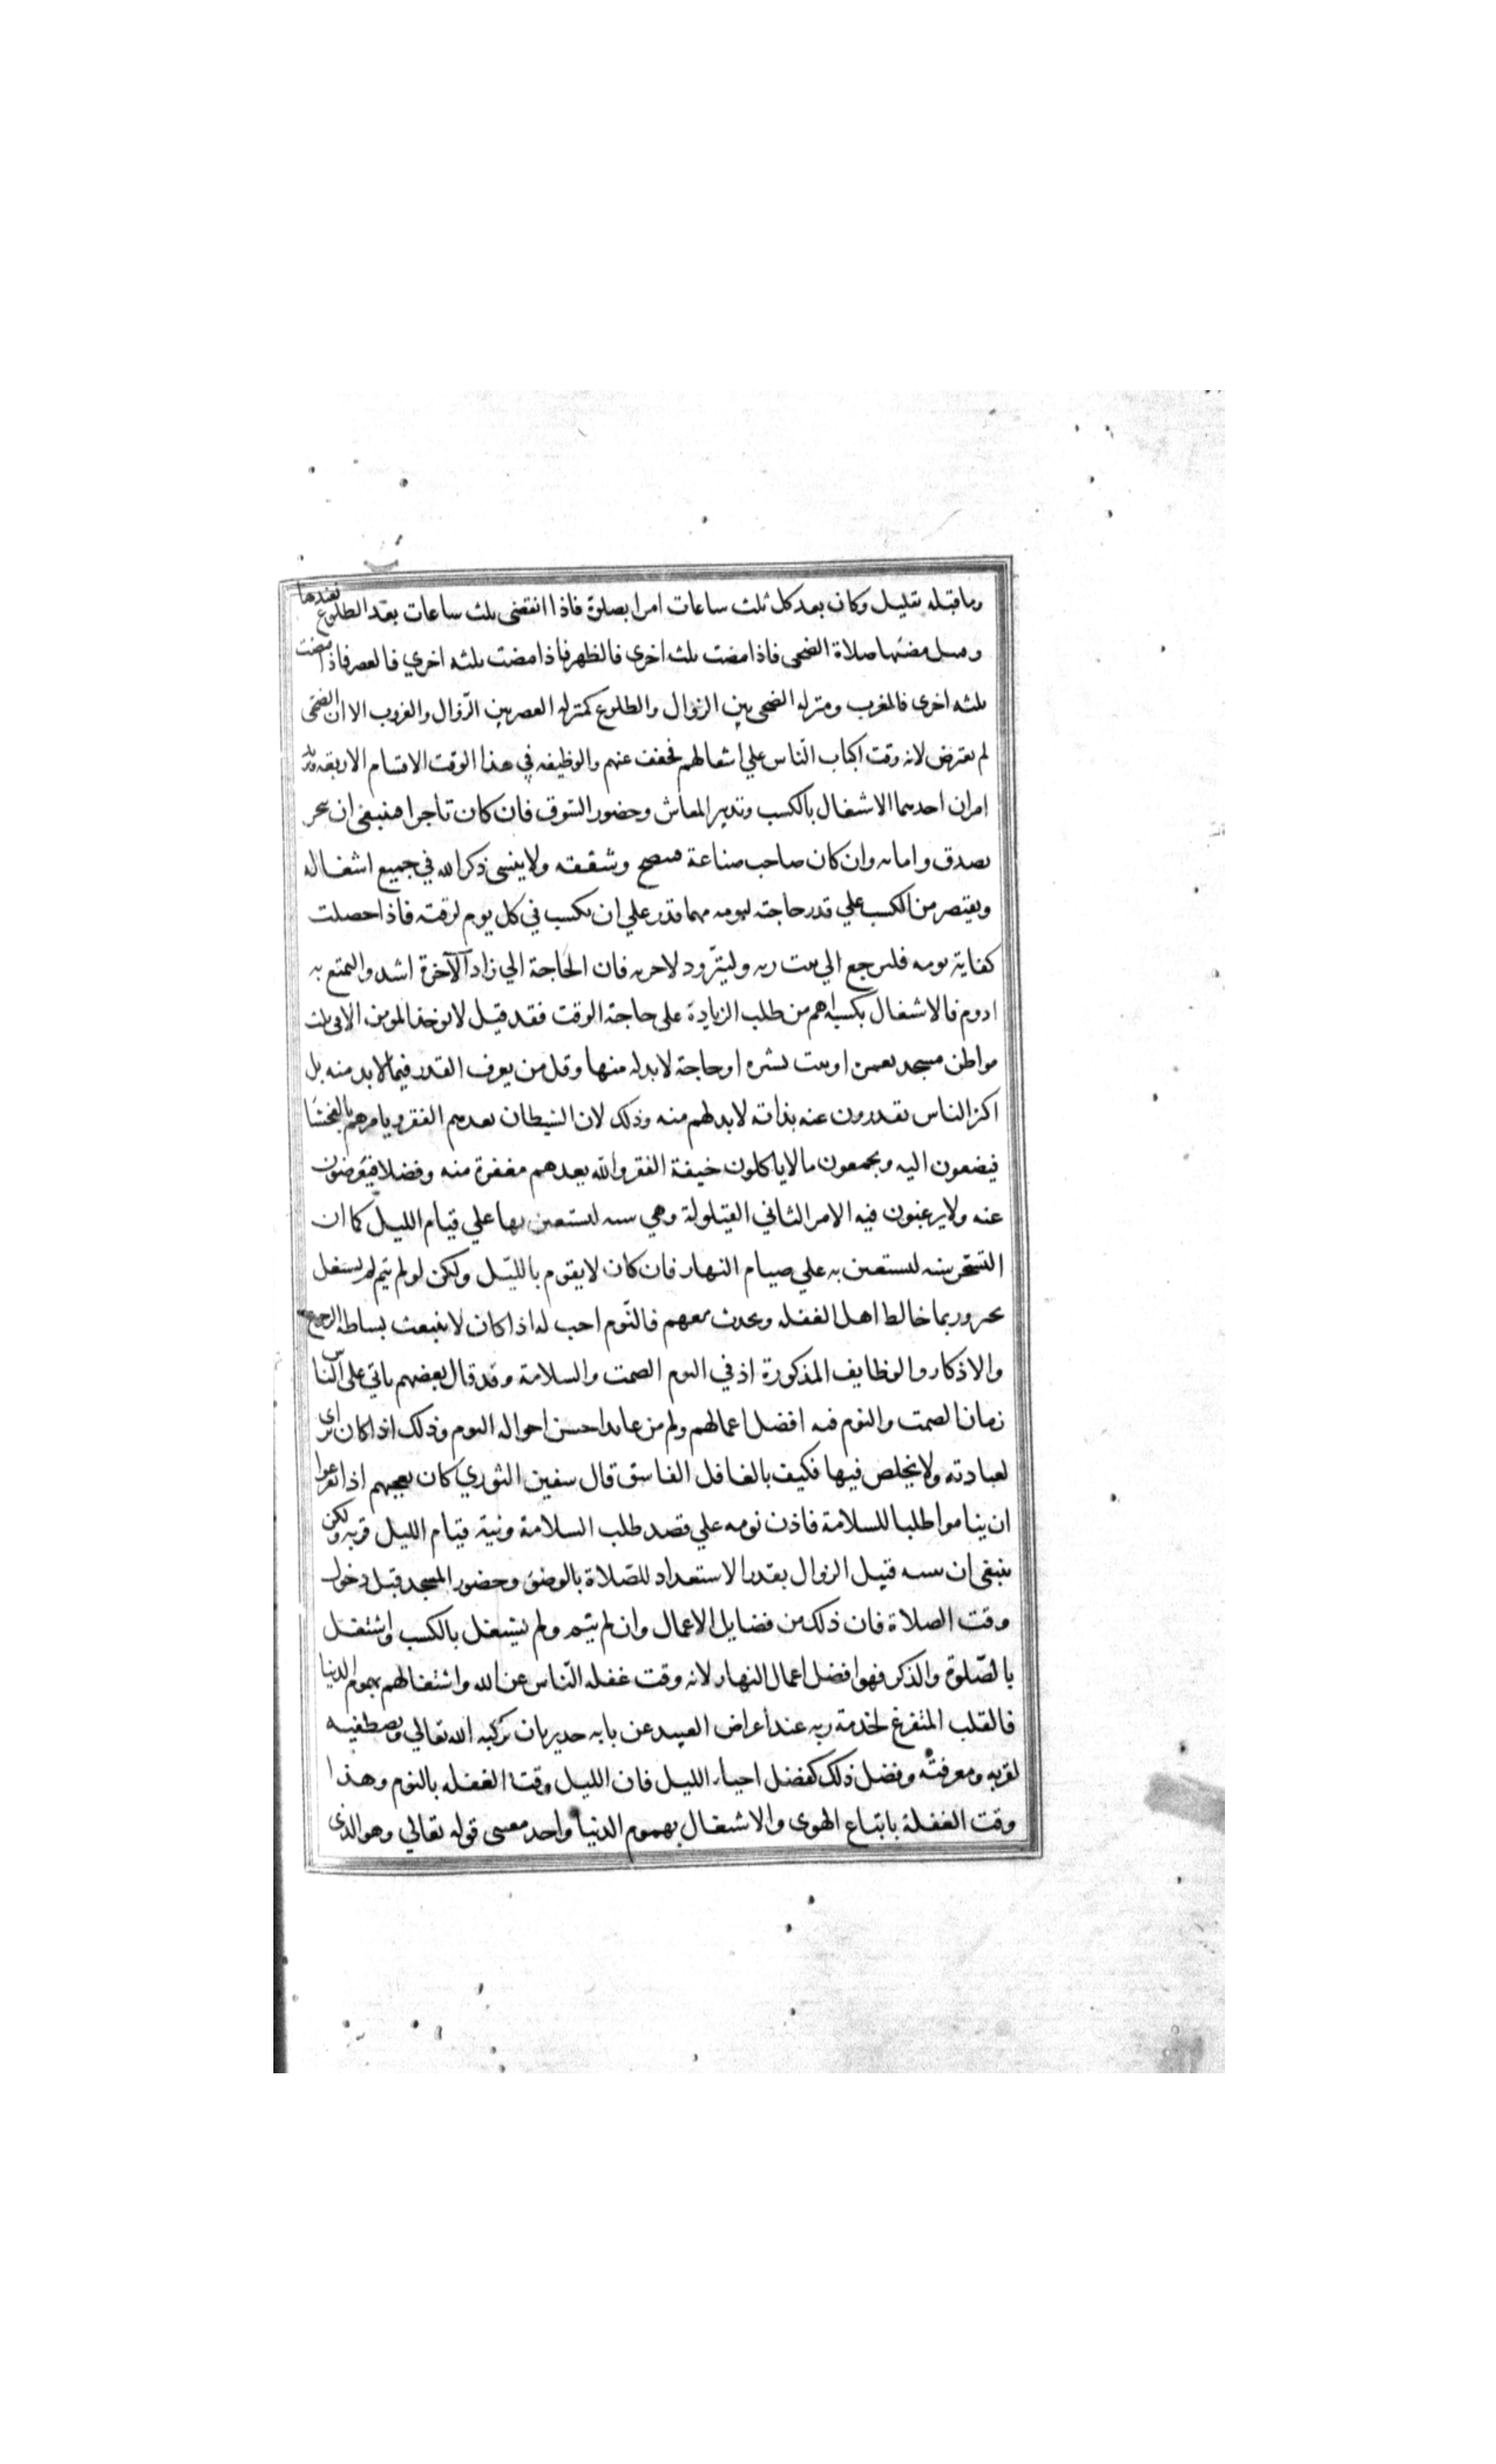 وما قبله بقليل وكان بعد كل ثلث ساعات امرا بصلوة فاذا انقضى ثلث ساعات بعد الطلوع فعندها
وقبل مضيها صلاة الضحى فاذا مضت ثلثه اخرى فالظهر فاذا مضت ثلثه اخري فالعصر فاذا مضت
ثلثه اخرى فالمغرب ومنزله الضحى بين الزوال والطلوع كمنزله العصر بين الزوال والغروب الا ان الضحى
لم يفترض لانه وقت اكباب النّاس علي اشغالهم فخفف عنهم والوظيفه في هذا الوقت الاقسام الاربعه وزيد
امران احدهما الاشغال بالكسب وتدبير المعاش وحضور السّوق فان كان تاجرا فينبغى ان يتجر
بصدق وامانه وان كان صاحب صناعة فبنصح وشفقه ولا ينسى ذكر الله في جميع اشغاله
ويقتصر من الكسب علي قدر حاجته ليومه مهما قدر علي ان يكسب في كل يوم لوقته فاذا حصلت
كفاية يومه فليرجع الي بيت ربه وليتزود لاخرته فان الحاجة الي زاد الآخرة اشد والتمتع به
ادوم فالاشغال بكسبه اهم من طلب الزيادة على حاجة الوقت فقد قيل لا يوخذ المومن الا في ثلث
مواطن مسجد يعمره او بيت يستره او حاجة لابد له منها وقل من يعرف القدر فيما لابد منه بل
اكثر الناس يقدرون عنه بذاته لابد لهم منه وذلك لان الشيطان يعدهم الفقر ويامرهم بالفحشا
فيضعون اليه ويجمعون مالا ياكلون خيفة الفقر والله يعدهم مغفرة منه وفضلا فيعرضون
عنه ولا يرغبون فيه الامر الثاني القيلولة وهي سنه ليستعين بها علي قيام الليل كما ان
التسحر سنه ليستعين به علي صيام النهار فان كان لا يقوم بالليل ولكن لو لم ينم لم يشتغل
بخير وربما خالط اهل الغفله ويحدث معهم فالنّوم احب له اذا كان لا ينبعث بساطه للرجوع
والاذكار والوظايف المذكورة اذ في النوم الصمت والسلامة وقد قال بعضهم ياتي على النّاس
زمان الصمت والنوم فيه افضل اعمالهم وكم من عابد احسن احواله النوم وذلك اذا كان يرائى
لعبادته ولا يخلص فيها فكيف بالغافل الفاسق قال سفين الثوري كان يعجبهم اذا تفرغوا
ان يناموا طلبا للسلامة فاذن نومه علي قصد طلب السلامة ونية قيام الليل قربه ولكن
ينبغى ان ينتبه قبل الزوال بقدر الاستعداد للصّلاة بالوضو وحضور المسجد قبل دخول
وقت الصلاة فان ذلك من فضايل الاعمال وان لم ينم ولم يشتغل بالكسب واشتغل
بالصّلوة والذكر فهو افضل اعمال النهار لانه وقت غفله النّاس عن الله واشتغالهم بهموم الدنيا
فالقلب المتفرغ لخدمة ربه عند اعراض العبيد عن بابه جدير بان يزكيه الله تعالي ويصطفيه
لقربه ومعرفته وفضل ذلك كفضل احياء الليل فان الليل وقت الغفله بالنوم وهذا
وقت الغفلة باتباع الهوى والاشتغال بهموم الدنيا واحد معنيى قوله تعالي وهو الذى